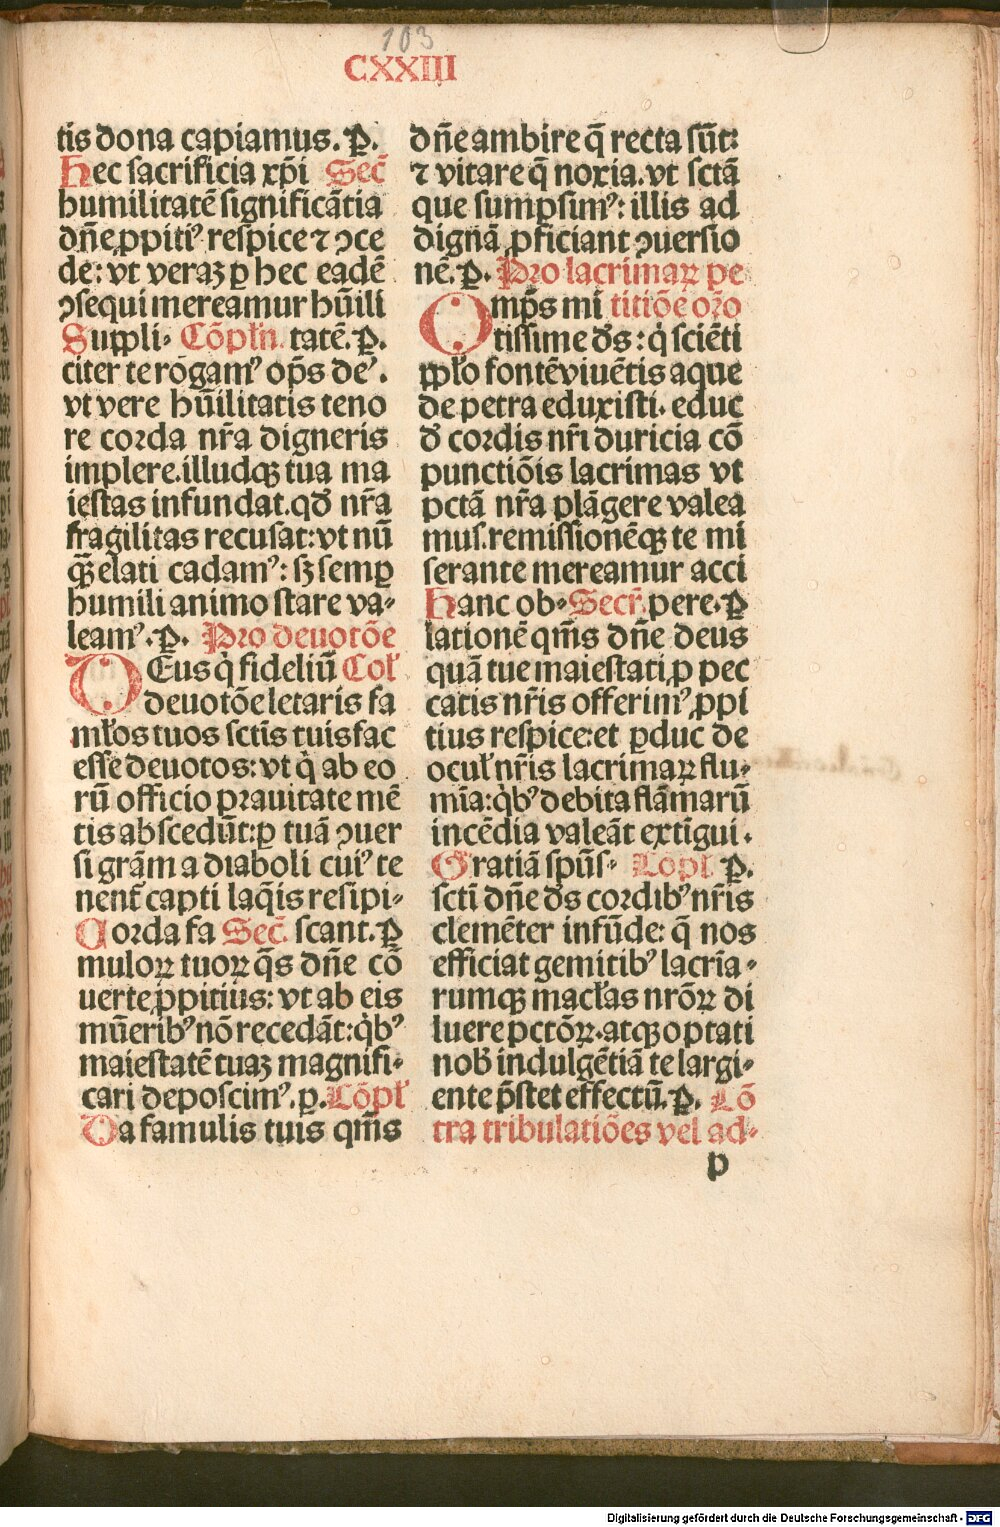 103
CXXIIII
tis dona capiamus. P.
Hec sacrificia xp̄i Sec̄
humilitatē significātia
dn̄e ꝓpitiꝰ respice ⁊ ꝯce
de: vt veraꝫ ꝑ hec eadē
ꝯsequi mereamur hūili
Suppli⸗ Cōpłn. tatē. P.
citer te rogamꝰ op̄s deꝰ.
vt vere hūilitatis teno
re corda nr̄a digneris
implere. illudqꝫ tua ma
iestas infundat. qđ nr̄a
fragilitas recusat: vt nū
q̄ꝫ elati cadamꝰ: sꝫ semꝑ
humili animo stare va⸗
leamꝰ. P. Pro deuotōe
DEus q̇ fideliū Coł
deuotōe letaris fa
młos tuos sctīs tuis fac
esse deuotos: vt q̇ ab eo
rū officio prauitate mē
tis abscedūt: ꝑ tuā ꝯuer
si grām a diaboli cuiꝰ te
nent̄ capti laq̇is resipi⸗
Corda fa Sec̄. scant. P
muloꝝ tuoꝝ q̄s dn̄e cō
uerte ꝓpitius: vt ab eis
mūeribꝰ nō recedāt: q̇bꝰ
maiestatē tuaꝫ magnifi⸗
cari deposcimꝰ. p. Cōpł
Da famulis tuis qm̄s
dn̄e ambire q̄ recta sūt:
⁊ vitare q̄ noxia. vt sctā
que sumpsimꝰ: illis ad
dignā ꝓficiant ꝯuersio
nē. P. Pro lacrimaꝝ pe
Omp̄s mi titiōe oro
tissime đs: q̇ sciēti
ppło fontē viuētis aque
de petra eduxisti. educ
đ cordis nr̄i duricia cō
punctiōis lacrimas vt
pctā nr̄a plāgere valea
mus. remissionēqꝫ te mi
serante mereamur acci
Hanc ob⸗ Secr̄. pere. P
lationē qm̄s dn̄e deus
quā tue maiestati ꝓ pec
catis nr̄is offerimꝰ ꝓpi
tius respice: et ꝑduc de
ocuł nr̄is lacrimaꝝ flu⸗
mīa: q̇bꝰ debita flāmarū
incēdia valeāt extīgui.
Gratiā spūs⸗ Copł P.
sctī dn̄e đs cordibꝰ nr̄is
clemēter infūde: q̄ nos
efficiat gemitibꝰ lacrīa⸗
rumqꝫ macłas nrōꝝ di
luere pctōꝝ. atqꝫ optati
nob̄ indulgētiā te largi⸗
ente p̄stet effectū. P. Cō
tra tribulatiōes vel ad⸗
p
Digitalisierung gefördert durch die Deutsche Forschungsgemeinschaft - DFG